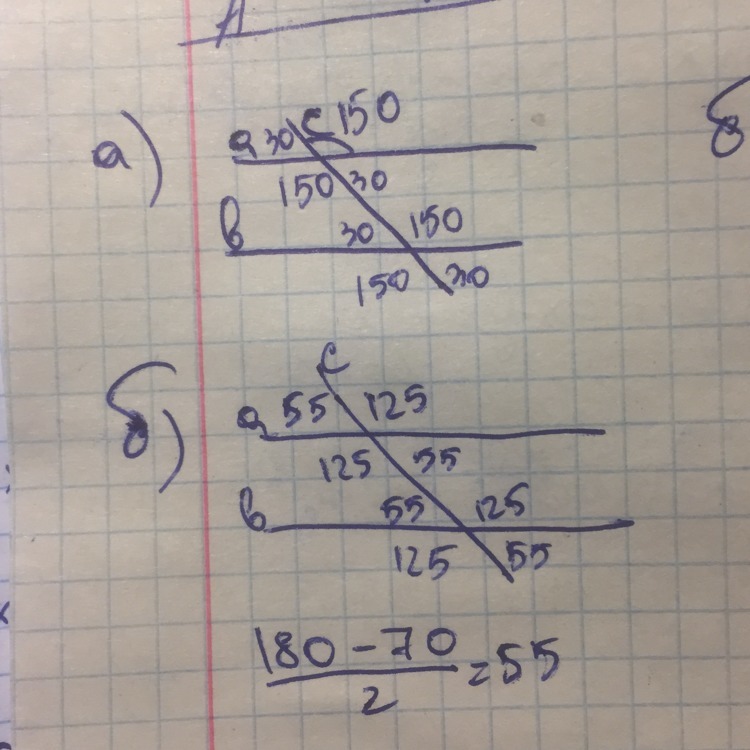 а)
a 30 c 150
150 30
b 30 150
150 30
б)
c
a 55 125
125 55
b 55 125
125 55
180 - 70
2
= 55